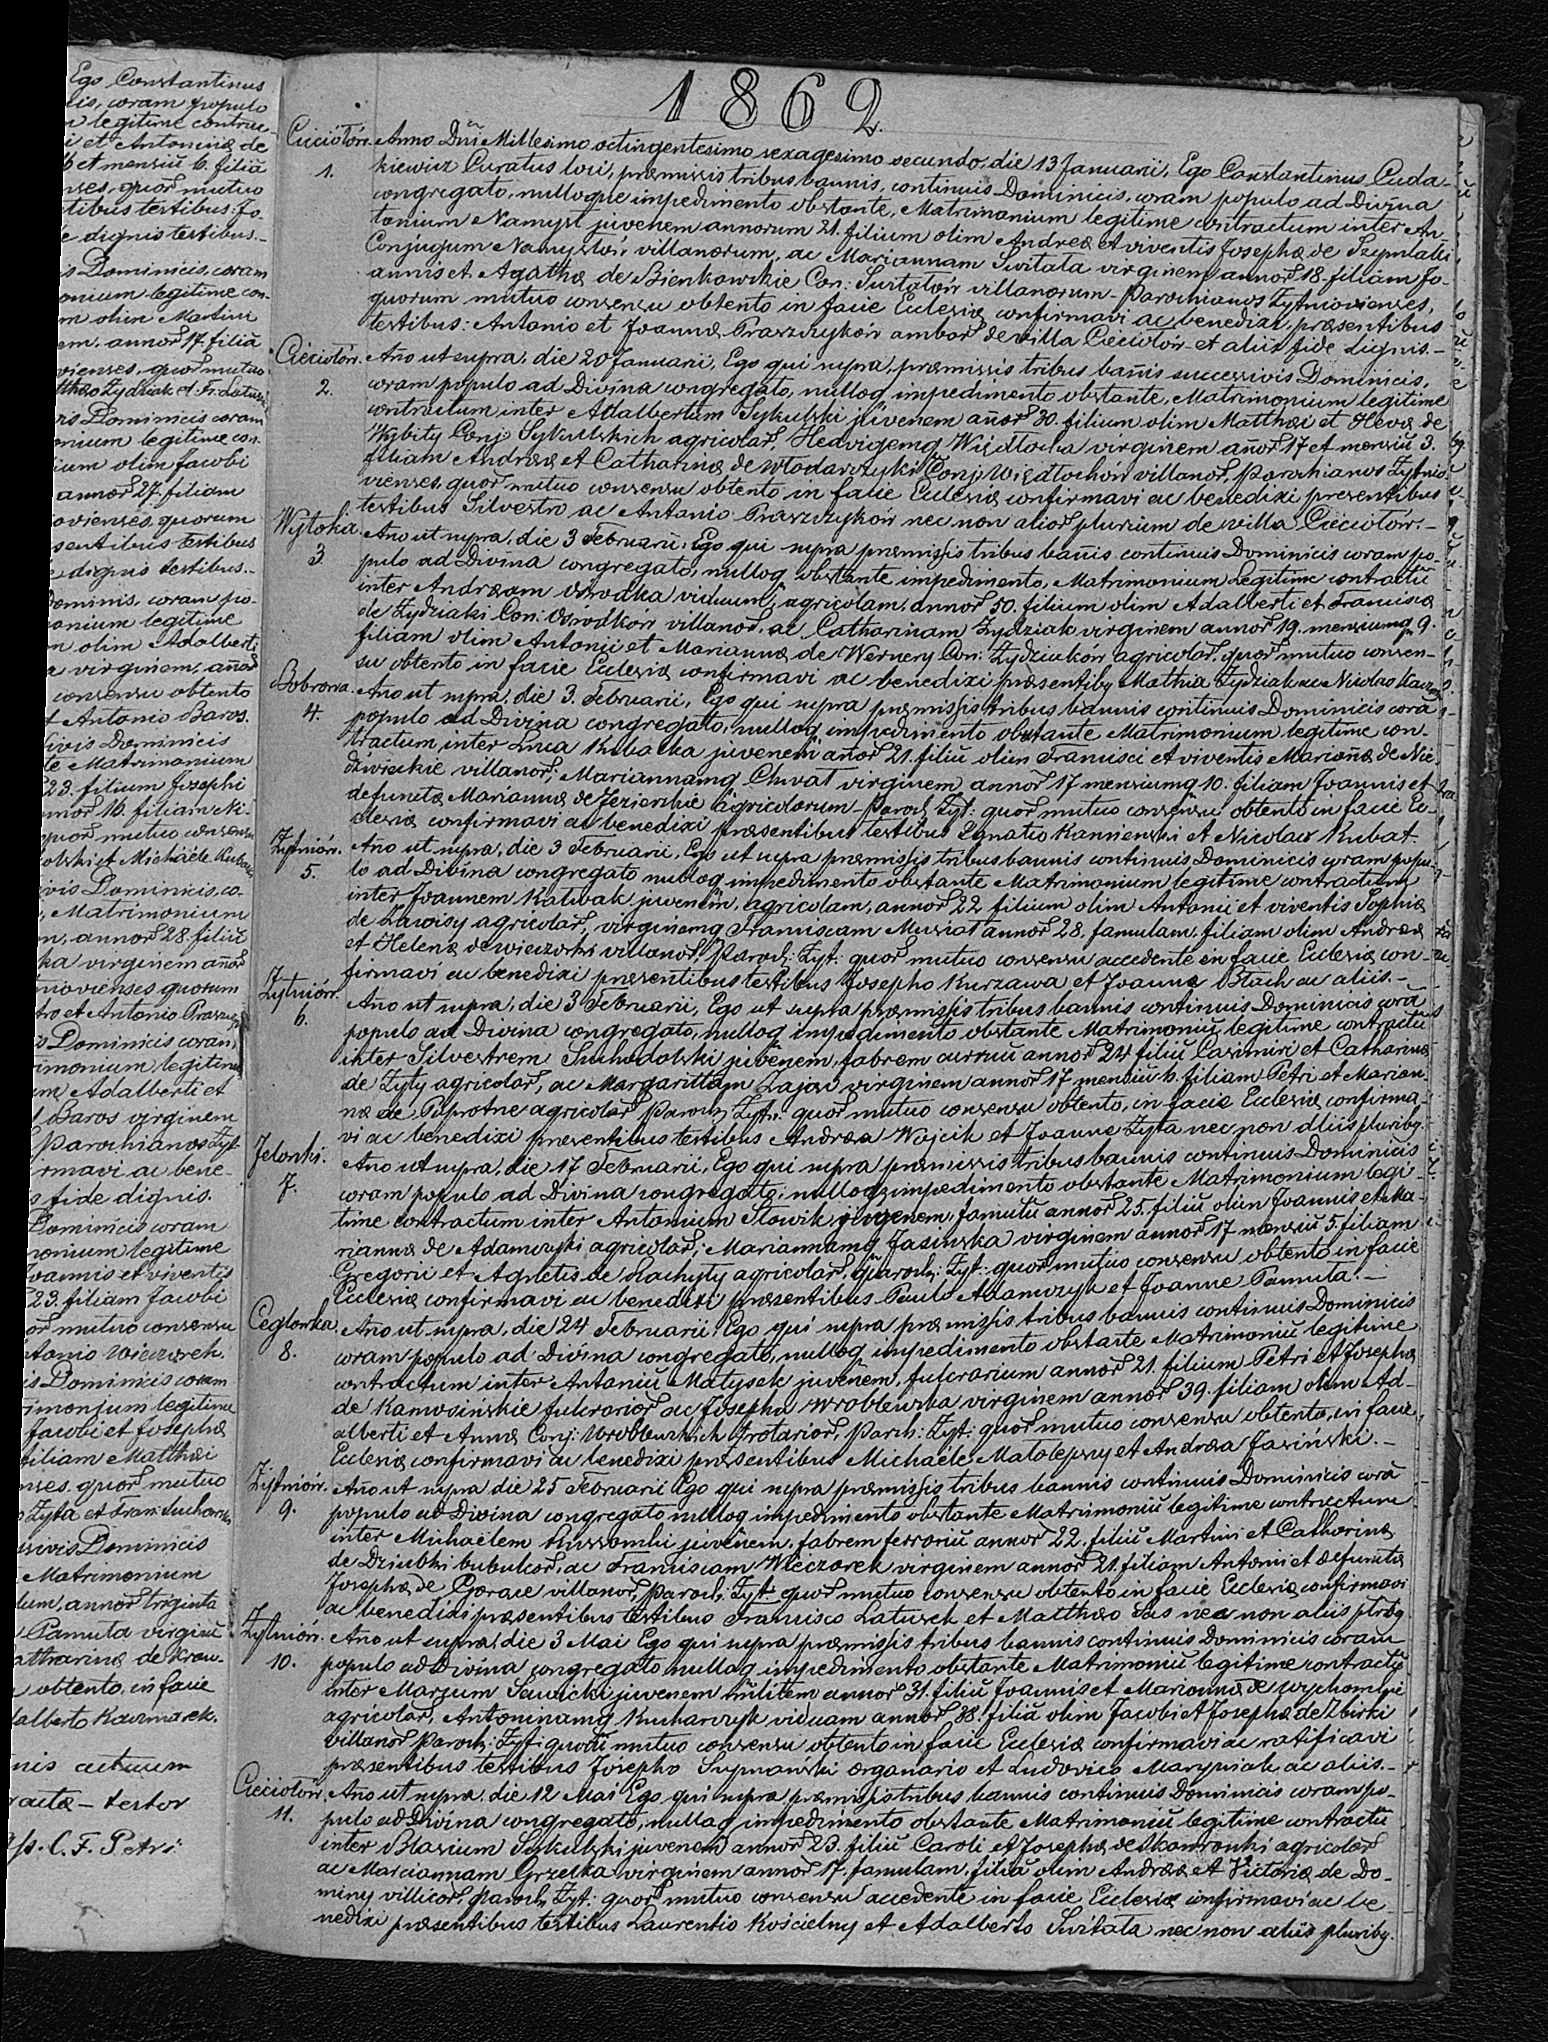 Ego Constantinus
lis, coram populo
legitime contrac-
i et Antoninæ de
et mensiu 6. filiã
nses, quor̃ mutuo
tibus testibus: Jo-
e dignis testibus.-
is Dominicis, coram
onium legitime con-
m olim Martini
em. annor̃ 17. filiã
vienses, quor̃ mutuo
tthæo Zydziak et Fr. Latusek
vis Dominicis coram
onium legitime con-
ium olim Jacobi
annor̃ 27. filiam
ovienses, quorum
sentibus testibus
dignis testibus.-
Dominis, coram po-
onium legitime
m olim Adalberti
a virginem, añor̃
consensu obtento
t Antonio Baros.
ivis Dominicis
te Matrimonium
23. filium Josephi
nnor̃ 16. filiam Ni-
quor̃ mutuo consensu
olski et Michaele
ivis Dominicis, co-
Matrimonium
m, annor̃ 28. filiũ
ka virginem añor̃
niovienses quorum
tro et Antonio
o Dominicis coram
rimonium legitime
um Adalberti et
Baros virginem
Parochianos Zyt-
rmavi ac bene-
s fide dignis.
Dominicis coram
monium legitime
Joannis et viventis
23. filiam Jacobi
or̃ mutuo consensu
tonio Wieczorek.
is Dominicis coram
rimonium legitime
Jacobi et Josephæ
filiam Matthæi
nses. quor̃ mutuo
Zyta et Fran: Sucharski
ssivis Dominicis
Matrimonium
lum, annor̃ triginta
Pamuta virginẽ
atharinæ de Kraw-
obtento, in facie
dalberto Kaczmarek.
nis actuum
racta - testor
C. F. Petri
1862.
Cieciołów. Anno Dni Millesimo octingentesimo sexagesimo secundo, die 13 Januarii, Ego Constantinus Cuda-
1. kiewicz Curatus loci, præmissis tribus bannis, continuis Dominicis, coram populo ad Divina
congregato, nulloque impedimento obstante, Matrimonium legitime contractum inter An-
tonium Namysł juvenem annorum 21. filium olim Andreæ et viventis Josephæ de Szymlaki
Conjugum Namysłów villanorum, ac Mariannam Switała virginem annor̃ 18. filiam Jo-
annis et Agathæ de Bienkowskie Con: Świtałów villanorum - Parochianos Zytniovienses,
quorum mutuo consensu obtento in facie Ecclesiæ confirmavi ac benedixi, præsentibus
testibus: Antonio et Joanne Praszczyków ambor̃ de villa Cieciołów et aliis fide dignis.-
Cieciołów. Año ut supra, die 20 Januarii, Ego qui supra, præmissis tribus bañis successivis Dominicis,
2. coram populo ad Divina congregato, nulloq̃ impedimento obstante, Matrimonium legitime
contractum inter Adalbertum Sykulski juvenem añor̃ 30. filium olim Matthæi et Hevæ de
Wybity Conj: Sykulskich agricolar̃, Hedvigemq̃ Więdłocha virginem añor̃ 17 et mensiũ 3.
filiam Andreæ et Catharinæ de Włodarczyki Conj: Więdłochów villanor̃, Parochianos Zytnio-
vienses. quor̃ mutuo consensu obtento, in facie Ecclesiæ confirmavi ac benedixi presentibus
testibus Silvestro ac Antonio Praszczyków nec non alior̃ plurium de villa Cieciołów.-
Wytoka. Año ut supra, die 3 Februarii, Ego qui supra præmissis tribus bañis continuis Dominicis coram po-
3. pulo ad Divina congregato, nulloq̃ obstante impedimento, Matrimonium Legitime contractũ
inter Andræam Osrodka viduum, agricolam, annor̃ 50. filium olim Adalberti et Franciscæ
de Zydziaki Con: Osródków villanor̃, ac Catharinam Zydziak virginem annor̃ 19. mensiumq̃ 9.
filiam olim Antonii et Mariannæ de Wernery Con: Zydziaków agricolar̃. quor̃ mutuo consen-
su obtento in facie Ecclesiæ confirmavi ac benedixi præsentibq Mathia Zydziak ac Nicolao
Bobrowa. Año ut supra, die 3. Februarii, Ego qui supra præmissis tribus bannis continuis Dominicis corã
4. populo ad Divina congregato, nulloq̃ impedimento obstante Matrimonium legitime con-
tractum inter Luca Kubacka juvenem añor̃ 21. filiũ olim Francisci et viventis Mariañæ de Nie-
dzwieckie villanor̃; Mariannamq̃ Chwał virginem annor̃ 17 mensiumq̃ 10. filiam Joannis et
defunctæ Mariannæ de Jezierskie agricolarum - Paroch Zyt: quor̃ mutuo consensu obtento in facie Ec-
clesiæ confirmavi ac benedixi præsentibus testibus Egnatio Kamienski et Nicolao Kubat
Zytniów. Año ut supra, die 3 Februarii, Ego ut supra præmissis tribus bannis continuis Dominicis coram popu-
5. lo ad Divina congregato nulloq̃ impedimento obstante Matrimonium legitime contractum
inter Joannem Kałwak juvenem, agricolam, annor̃ 22 filium olim Antonii et viventis Sophiæ
de Zawisy agricolar̃, virginemq̃ Franciscam Musiał annor̃ 28, famulam, filiam olim Andreæ
et Helenæ de Wieczorki villanor̃, Paroch: Zyt: quor̃ mutuo consensu accedente en facie Ecclesiæ con-
firmavi ac benedixi præsentibus testibus Josepho Kurzawa et Joanne Błach ac aliis.-
Zytniów. Año ut supra, die 3 Februarii, Ego ut supra præmissis tribus bannis continuis Dominicis corã
6. populo ad Divina congregato, nulloq̃ impedimento obstante Matrimoniũ legitime contractũ
inter Silvestrem Suchodolski juvenem, fabrem curruũ annor̃ 24 filiũ Casimiri et Catharinæ
de Zyty agricolar̃, ac Margarittam Zając virginem annor̃ 17 mensiũ 6. filiam Petri et Marian-
næ de Paprotne agricolar̃ Paroch Zyt: quor̃ mutuo consensu obtento, in facie Ecclesiæ confirma-
vi ac benedixi præsentibus testibus Andræa Wójcik et Joanne Zyta nec non aliis pluribq.
Jelonki. Año ut supra, die 17 Februarii, Ego qui supra præmissis tribus bannis continuis Dominicis
7. coram populo ad Divina congregato; nulloq̃ impedimento obstante Matrimonium legi-
time contractum inter Antonium Słowik juvenem, famulũ annor̃ 25. filiũ olim Joannis et Ma-
riannæ de Adamczyki agricolar̃, Mariannamq̃ Jasinska virginem annor̃ 17 mensiũ 5. filiam
Gregorii et Agnetis de Rachyty agricolar̃, Paroch: Zyt: quor̃ mutuo consensu obtento in facie
Ecclesiæ confirmavi ac benedixi præsentibus Paulo Adamczyk et Joanne Pamuła.-
Ceglonka. Año ut supra, die 24 Februarii Ego qui supra præmissis tribus bannis continuis Dominicis
8. coram populo ad Divina congregato, nulloq̃ impedimento obstante Matrimoniũ legitime
contractum inter Antoniũ Matysek juvenem, fulcrarium annor̃ 21. filium Petri et Josephæ
de Kamosinskie fulcrarior̃ ac Josepha Wroblewska virginem annor̃ 39. filiam olim Ad-
alberti et Annæ Conj: Wroblewskich Protarior̃, Parch: Zyt: quor̃ mutuo consensu obtento, in facie
Ecclesiæ confirmavi ac benedixi præsentibus Michaële Małolepszy et Andræa Jasiński.-
Zytniów. Año ut supra die 25 Februarii Ego qui supra præmissis tribus bannis continuis Dominicis corã
9. populo ad Divina congregato nulloq̃ impedimento obstante Matrimoniũ legitime contractum
inter Michaëlem Kussowski juvenem, fabrem ferrariũ annor̃ 22. filiũ Martini et Catharinæ
de Dziubki bubulcor̃, ac Franciscam Wieczorek virginem annor̃ 21. filiam Antonii et defunctæ
Josephæ de Gorące villanor̃, Paroch: Zyt: quor̃ mutuo consensu obtento in facie Ecclesiæ confirmavi
ac benedixi præsentibus testibus Francisco Latusek et Matthæo Sas nec non aliis plrbq
Zytniów. Año ut supra, die 3 Mai Ego qui supra præmissis tribus bannis continuis Dominicis coram
10. populo ad Divina congregato nulloq̃ impedimento obstante Matrimoniũ legitime contractũ
inter Marcum Sawicki juvenem militem annor̃ 31. filiũ Joannis et Mariannæ de
agricolar̃, Antoninamq̃ Kucharczyk viduam annor̃ 38. filiã olim Jacobi et Josephæ de Zbirki
villanor̃ Paroch: Zyt: quorũ mutuo consensu obtento in facie Ecclesiæ confirmavi ac ratificavi
præsentibus testibus Josepho Szymański organario et Ludovico Marysiak ac aliis.-
Cieciołów. Año ut supra, die 12 Mai Ego qui supra præmissis tribus bannis continuis Dominicis coram po-
11. pulo ad Divina congregato, nulloq̃ impedimento obstante Matrimoniũ legitime contractũ
inter Blasium Sykulski juvenem annor̃ 23. filiũ Caroli et Josephæ de Skowronki agricolar̃
ac Mariannam Grzelka virginem annor̃ 17. famulam, filiã olim Andreæ et Victoriæ de Do-
miny villicor̃, Paroch, Zyt: quor̃ mutuo consensu accedente in facie Ecclesiæ confirmavi ac be-
nedixi præsentibus testibus Laurentio Kościelny et Adalberto Switała nec non aliis pluribq.